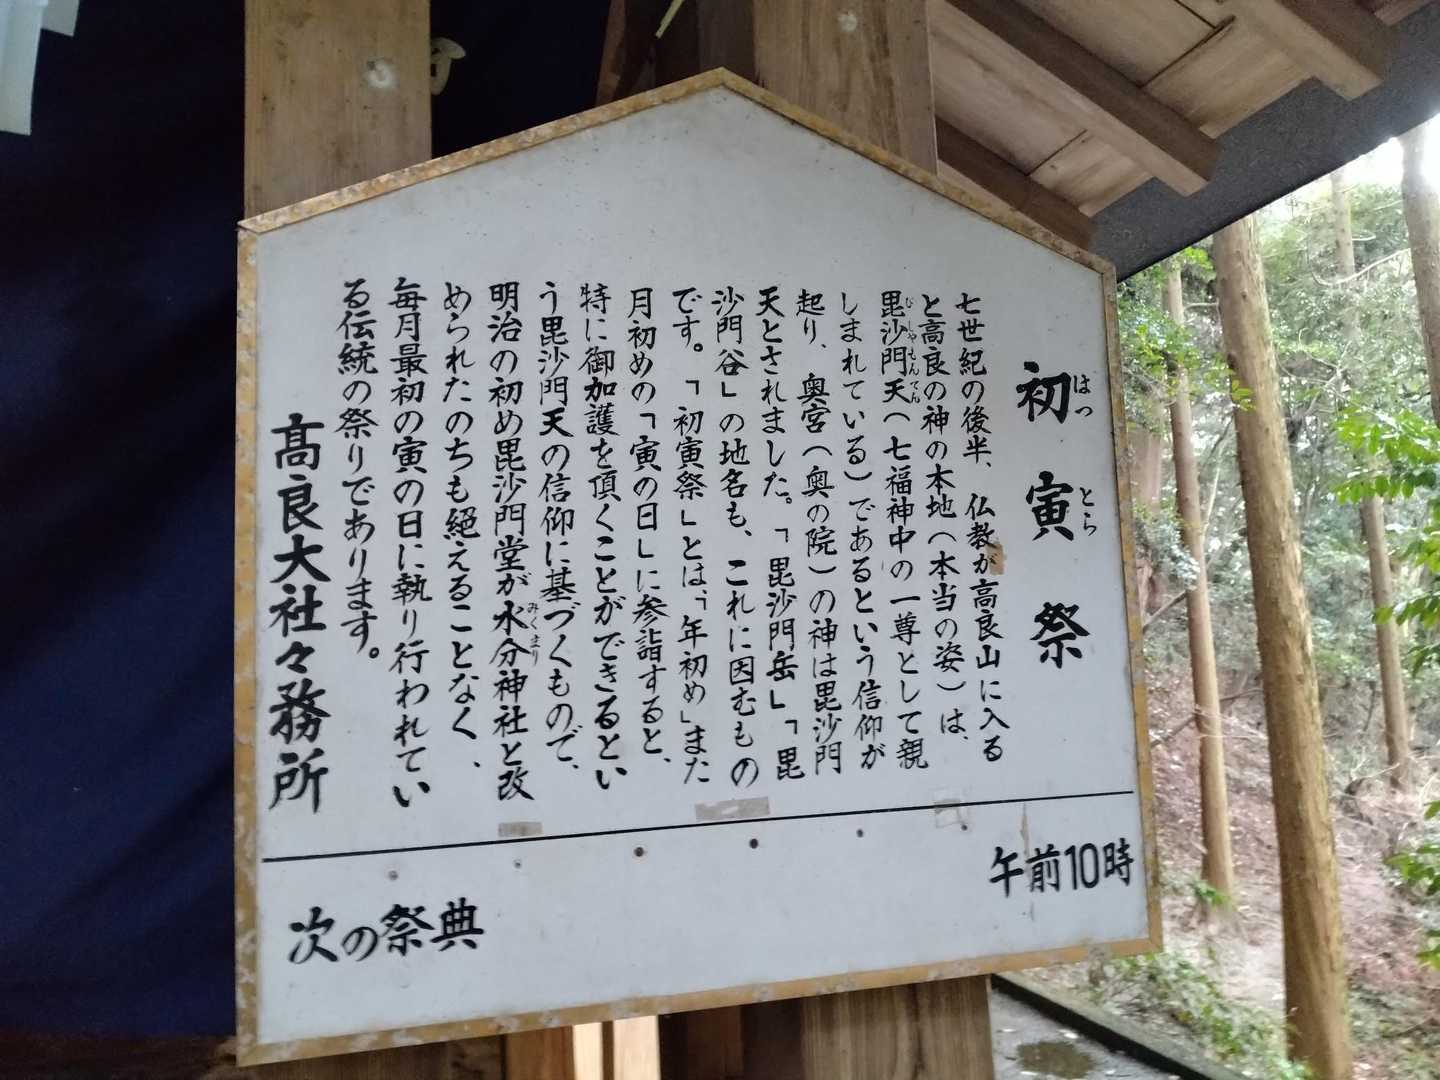 初寅祭
はつ とら
七世紀の後半、仏教が高良山に入る
と高良の神の本地(本当の姿)は、
毘沙門天(七福神中の一尊として親
びしゃもんてん
しまれている)であるという信仰が
起り、奥宮(奥の院)の神は毘沙門
天とされました。「毘沙門岳」「毘
沙門谷」の地名も、これに因むもの
です。「初寅祭」とは、「年初め」また
月初めの「寅の日」に参詣すると、
特に御加護を頂くことができるとい
う毘沙門天の信仰に基づくもので、
明治の初め毘沙門堂が水分神社と改
みくまり
められたのちも絶えることなく、
毎月最初の寅の日に執り行われてい
る伝統の祭りであります。
髙良大社々務所
午前10時
次の祭典